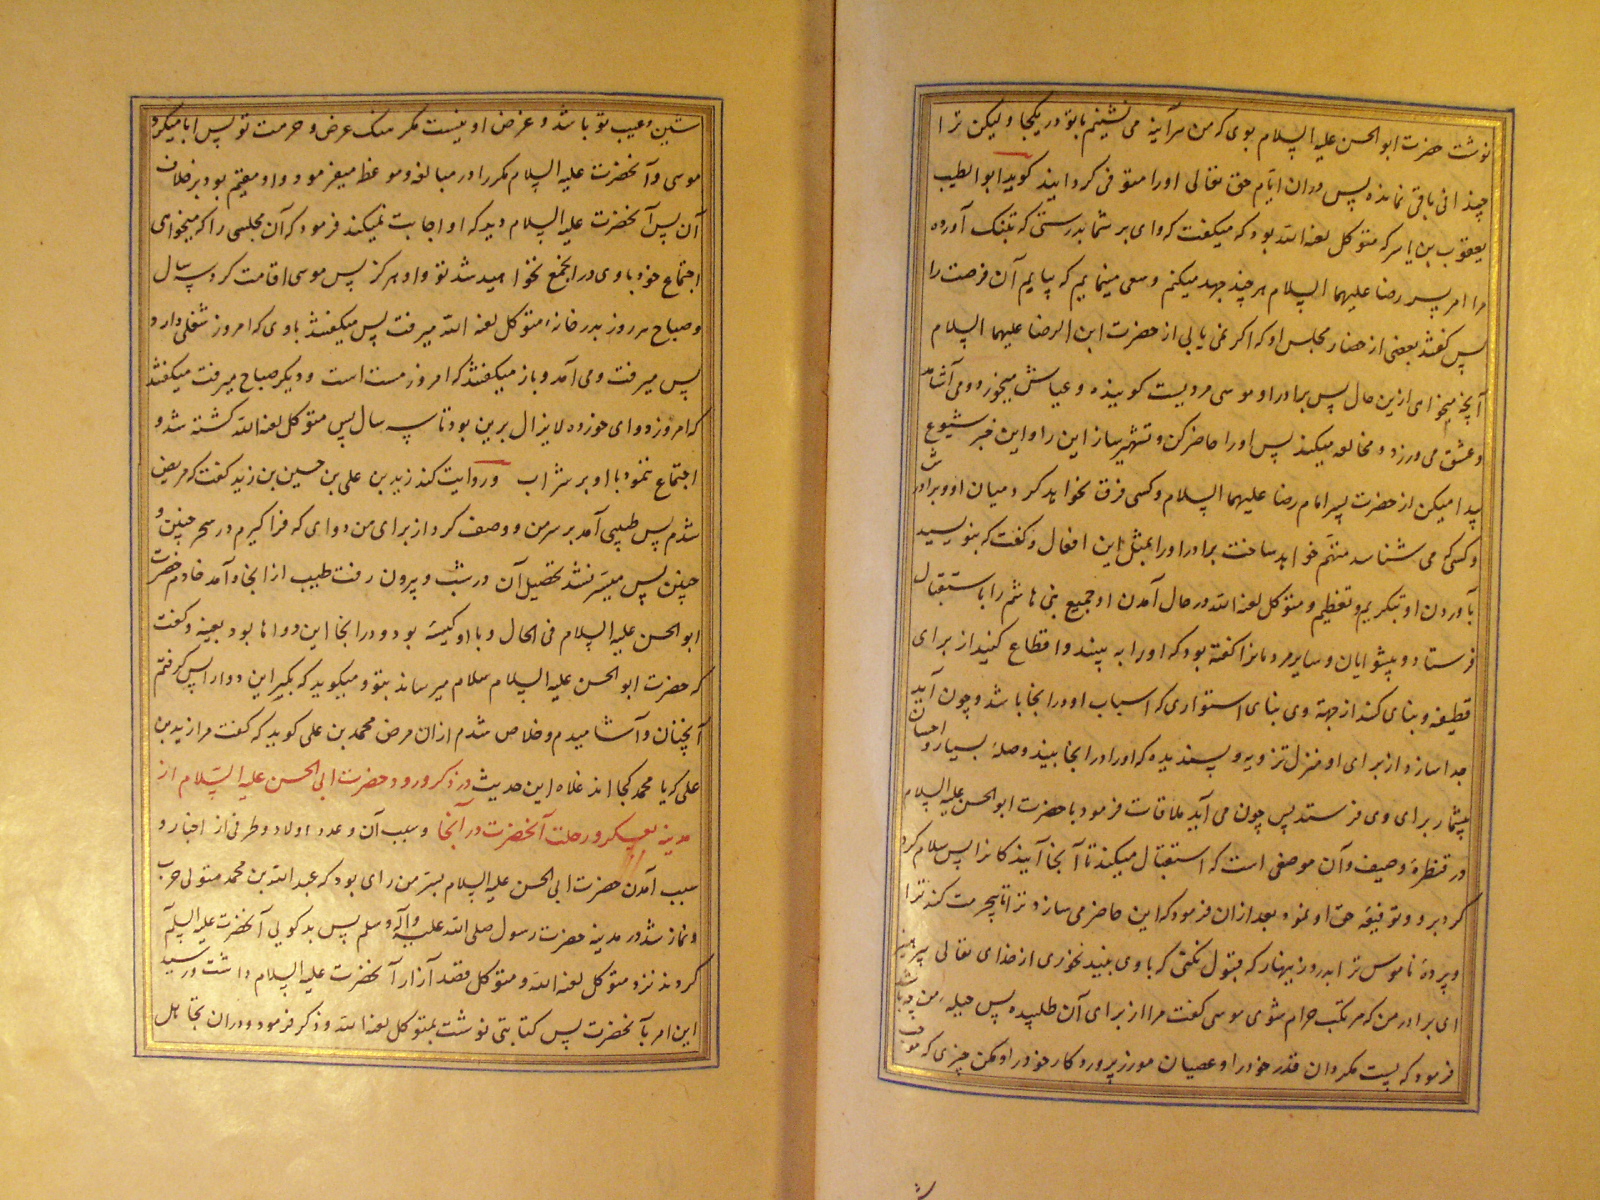 نوشت حضرت ابو الحسن علیه السلام بوی که من هرآینه می نشینم باتو در یکجا و لیکن ترا
چندانی باقی نمانده پس در ان ایام حق تعالی او را متوفی کردانید کوید ابو الطیب
یعقوب بن یاسر که متوکل لعنه الله بود که میکفت که وای بر شما بدرستی که بتنک آورده
مرا امر پسر رضا علیهما السلام هر چند جهد میکنم و سعی مینمایم که بیابم آن فرصت را
پس کفتند بعضی از حضار مجلس او که اکر نمی یابی از حضرت ابن الرضا علیهما السلام
آنچه میخوای ازین حال پس برادر او موسی مردیست کوینده و عیاش میخورد و می آشامد
و عشق می ورزد و مخالعه میکند پس او را حاضر کن و تشهیر ساز این را و این خبر شیوع
پیدا میکن از حضرت پسر امام رضا علیهما السلام و کسی فرق نخواهد کرد میان او و برادرش
و کسی که می شناسد متهم خواهد ساخت برادر او را بمثل این افعال و کفت که بنویسید
بآوردن او بتکریم و تعظیم و متوکل لعنه الله در حال آمدن او جمیع بنی هاشم را باستقبال
فرستاد و پیشوایان و سایر مردمانرا کفته بود که او را به بینند و اقطاع کنید از برای
قطیعه و بنای کند از جهة وی بنای استواری که اسباب او در انجا باشد و چون آید
جدا سازد از برای او منزل نزد و پسندیده که او را در انجا بیند و صلهٔ بسیار و احسان
بیشمار برای وی فرستد پس چون می آید ملاقات فرمود با حضرت ابو الحسن علیه السلام
در قنطرهٔ وصیف و آن موضعی است که استقبال میکنند تا آنجا آیندکانرا پس سلام کرد
کرد برو و توفیهٔ حق او نمود بعد از ان فرمود که این حاضر می سازد ترا تا بیحرمت کند ترا
و پردهٔ ناموس ترا بدرد زینهار که قبول نکنی که با وی نبیذ نخوری از خدای تعالی بپرهیز
ای برادر من که مرتکب حرام شوی موسی کفت مرا از برای آن طلبیده پس حیلهٔ من چه باشد
فرمود که پست مکردان قدر خود را و عصیان مورز پروردکار خود را و مکن چیزی که موجب
شین و عیب تو باشد و غرض او نیست مکر هتک عرض و حرمت تو پس ابا میکرد
موسی و آنحضرت علیه السلام مکرر او را مبالغه و موعظ میفرمود و او مقیم بود بر خلاف
آن پس آنحضرت علیه السلام دید که او اجابت نمیکند فرمود که آن مجلسی را که میخوای
اجتماع خود با وی در انجمع نخواهید شد تو و او هرکز پس موسی اقامت کرد سه سال
و صباح هر روز بدر خانهٔ متوکل لعنه الله میرفت پس میکفتند با وی که امروز شغلی دارد
پس میرفت و می آمد و باز میکفتند که امروز مست است و دیکر صباح میرفت میکفتند
که امروز دوای خورده لایزال برین بود تا سه سال پس متوکل لعنه الله کشته شد و
اجتماع ننمود با او بر شراب و روایت کند زید بن علی بن حسین بن زید کفت که مریض
شدم پس طبیبی آمد بر سر من و وصف کرد از برای من دوای که فرا کیرم در سحر چنین و
چنین پس میسر نشد تحصیل آن در شب و بیرون رفت طبیب از انجا و آمد خادم حضرت
ابو الحسن علیه السلام فی الحال و با او کیسهٔ بود و در انجا این دواها بود بعینه و کفت
که حضرت ابو الحسن علیه السلام سلام میرساند بتو و میکوید که بکیر این دوا را پس کرفتم
آنچنان و آشامیدم و خلاص شدم از ان مرض محمد بن علی کوید که کفت مرا زید بن
علی که یا محمد کجااند غلاه این حدیث در ذکر ورود حضرت ابی الحسن علیه السلام از
مدینه بعسکر و رحلت آنحضرت در آنجا و سبب آن و عدد اولاد و طرفی از اخبار او
سبب آمدن حضرت ابی الحسن علیه السلام بسر من رای بود که عبد الله بن محمد متولی حرب
و نماز شد در مدینه حضرت رسول صلی الله علیه و آله و سلم پس بدکویی آنحضرت علیه السلام
کردند نزد متوکل لعنه الله و متوکل قصد آزار آنحضرت علیه السلام داشت و رسید
این امر بآنحضرت پس کتابتی نوشت بمتوکل لعنه الله و ذکر فرمود در ان تجاهل